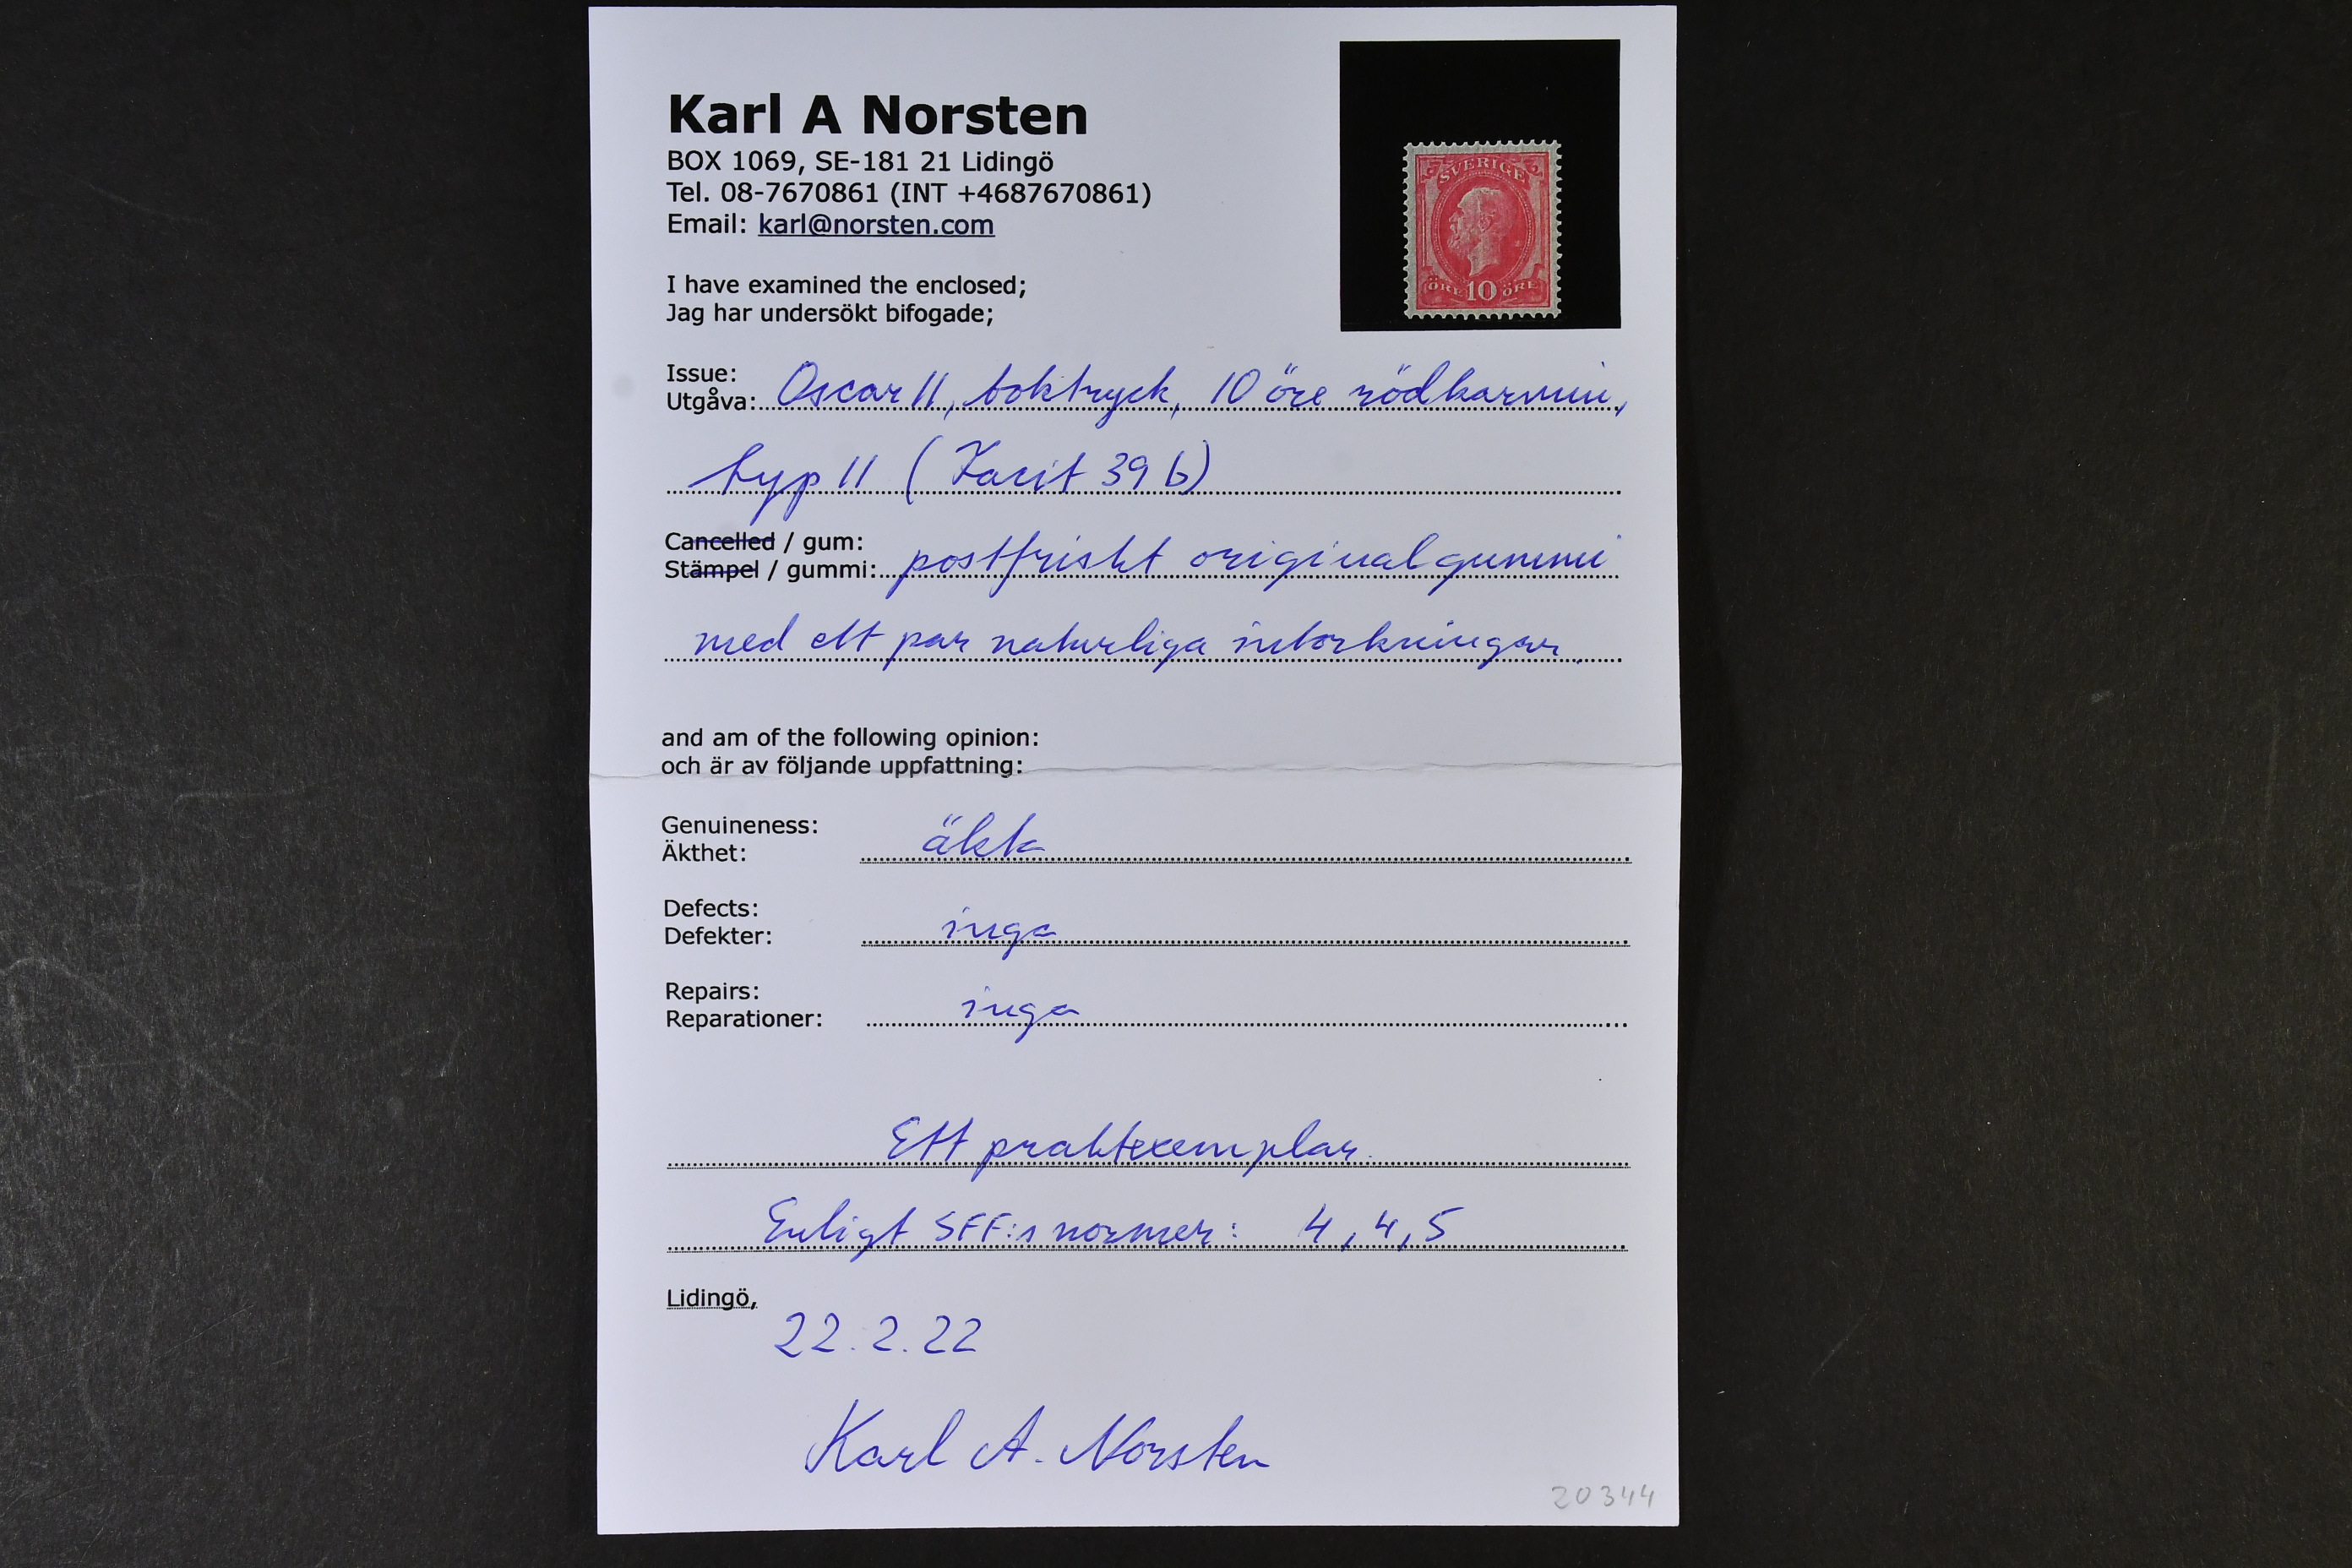 Karl A Norsten
BOX 1069, SE-181 21 Lidingö
Tel. 08-7670861 (INT +4687670861)
Email: karl@norsten.com
SVERIGE
ÖRE 10 ÖRE
I have examined the enclosed;
Jag har undersökt bifogade;
Issue:
Utgåva: Oscar II, boktryck, 10 öre rödkarmin,
typ II (Facit 39 b)
Cancelled / gum:
Stämpel / gummi: postfriskt originalgummi
med ett par naturliga intorkningar.
and am of the following opinion:
och är av följande uppfattning:
Genuineness:
Äkthet: äkta
Defects:
Defekter: inga
Repairs:
Reparationer: inga
Ett praktexemplar.
Enligt SFF:s normer: 4, 4, 5
Lidingö,
22.2.22
Karl A. Norsten
20344